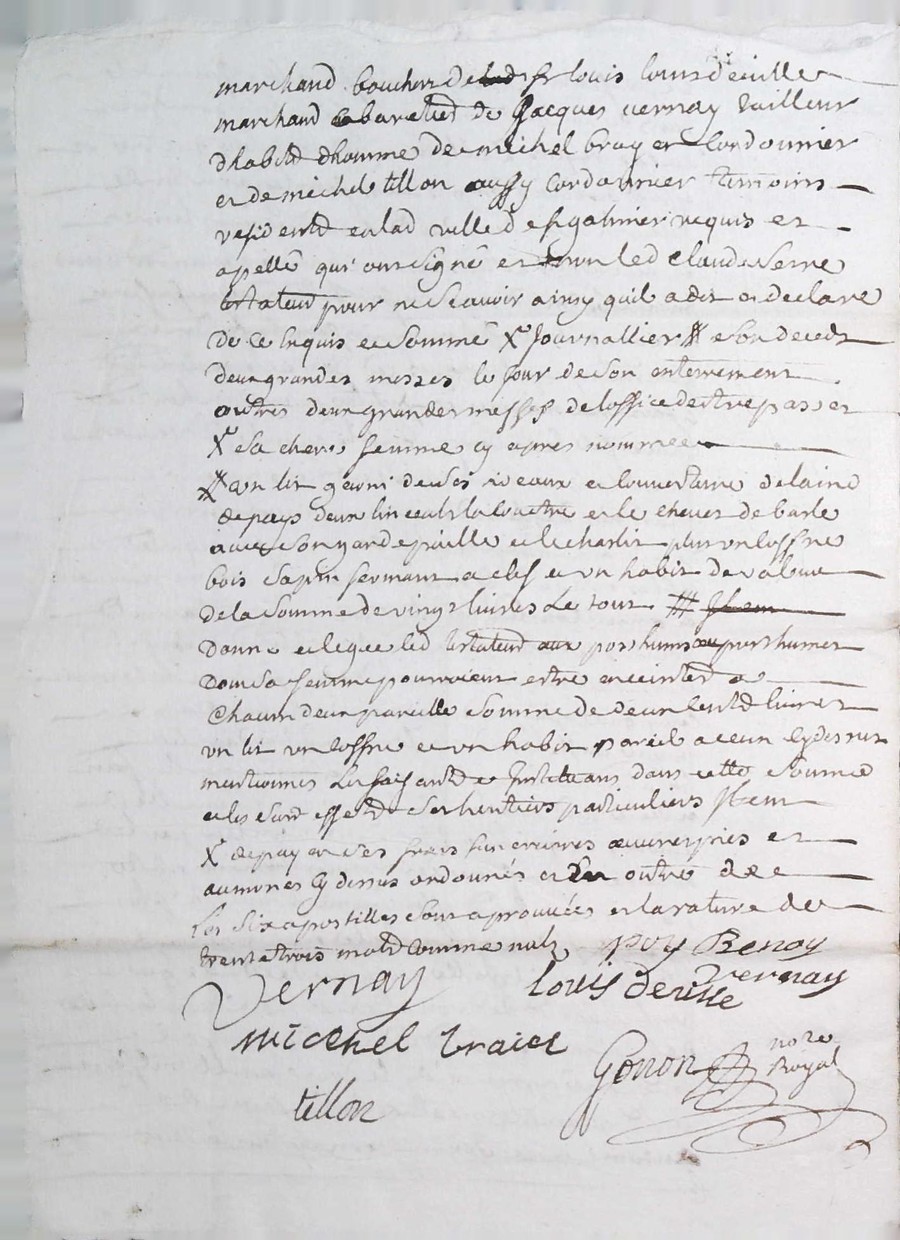 marchand boucher de sr louis louis deville
marchand cabaretier de Jacques vernay tailleur
dhabitd dhomme de michel bray et Cordonnier
et de michel tillon aussy cordonnier temoins
residentd en lad ville de st galmier requis et
apellé qui ont signé et non led claude serre
testateur pour ne scavoir ainsy quil a dit et declaré
de ce enquis et sommé X Journallier # son decedz
deux grandes messes le Jour de son enterrement
outres deux grandes messes de loffice des trepasses
X sa chere femme cy apres nommée
# un lit garni de ses rideaux et couverture de laine
de pays deux linceulz et le chevet de
avec son garde paille et le charlit plus un coffre
bois sapin fermant a clef et un habit de valeur
de la somme de vingt livres Le tout # Item
donne et legue led testateur aux poshumes ou poshumes
dont sa femme pourroient estre enceinte a
Chacun deux pareille somme de deux centd livres
un lit un coffre et un habit pareil a ceux cydessus
mentionnes Les faisant et Instituant dans cette somme
et les susd effetd ses heritiers particuliers Item
X de payer ses frais funeraires œuvres pies et
aumones cy dessus ordonnés et en outre de
Les six apostilles sont aprouvées et la rature de
trente trois motd comme nulz poy Benoy
Vernay louis deville vernay
micchel braiet
Gonon nore
Royal
tillon